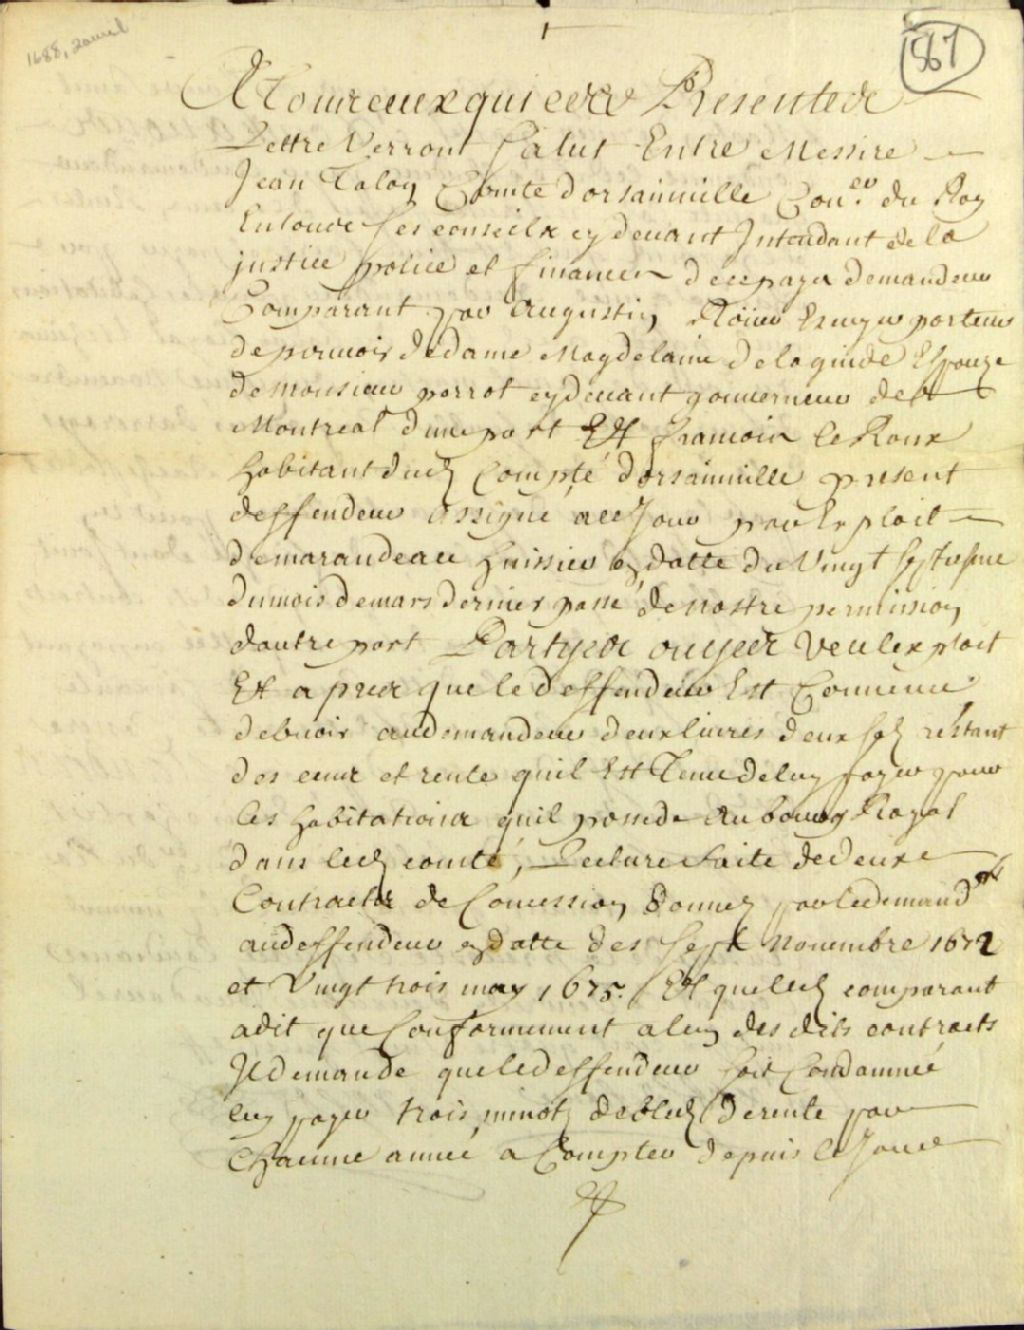 1688, 2 avril
867
A Tous ceux qui ces Presentes
Lettre Verront Salut Entre Messire
Jean Talon Comte dorsainuille Con.er du Roy
En tous Ses conseilx cy deuant Intendant de la
justice police et finances de ce pays demandeur
Comparant par Augustin Roüer Escuyer porteur
de pouuoir de dame Magdelaine de laguide Espouze
de Monsieur perrot cy deuant gouuerneur de
Montreal dune part Et francois le Roux
habitant dud Compté dorsainuille present
deffendeur assigné a ce Jour par Exploit
de marandeau huissier en datte du Vingt
du mois de mars dernier passé, de nostre permission
dautre part Partyes ouyes Veu lexploit
Et apres que le deffendeur Est Conuenu
debuoir au demandeur deux liures deux solz restant
des cens et rente quil Est Tenu de luy payer pour
les habitations quil possede au bourg Royal
dans led comté, Lecture faite de deux
Contractz de Concession donnez par le demandr
au deffendeur en datte des Sept nouembre 1672
et Vingt trois may 1675. Et que led comparant
a dit que Conformement a lun des dits contracts
Il demande que le deffendeur soit Condamné
luy payer trois minotz de bled de rente par
Chacune année a Compter depuis le Jour